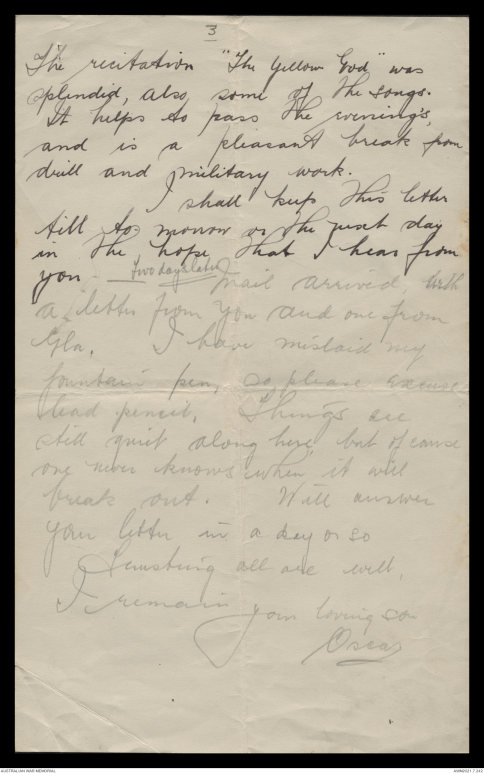 3
The recitation "The Yellow God" was
splended, also some of the songs.
It helps to pass the evening's,
and is a pleasant break from
drill and military work.
I shall keep this letter
till to morrow or the next day
in the hope that I hear from
you. Two days later Mail arrived, with
a letter from you and one from
Gla. I have mislaid my
fountain pen, so please excuse
lead pencil. Things are
still quiet along here, but of cause
one never knows when it will
break out. Will answer
your letter in a day or so
Trusting all are well,
I remain your loving son
Oscar
AUSTRALIAN WAR MEMORIAL
AWM2021.7.242